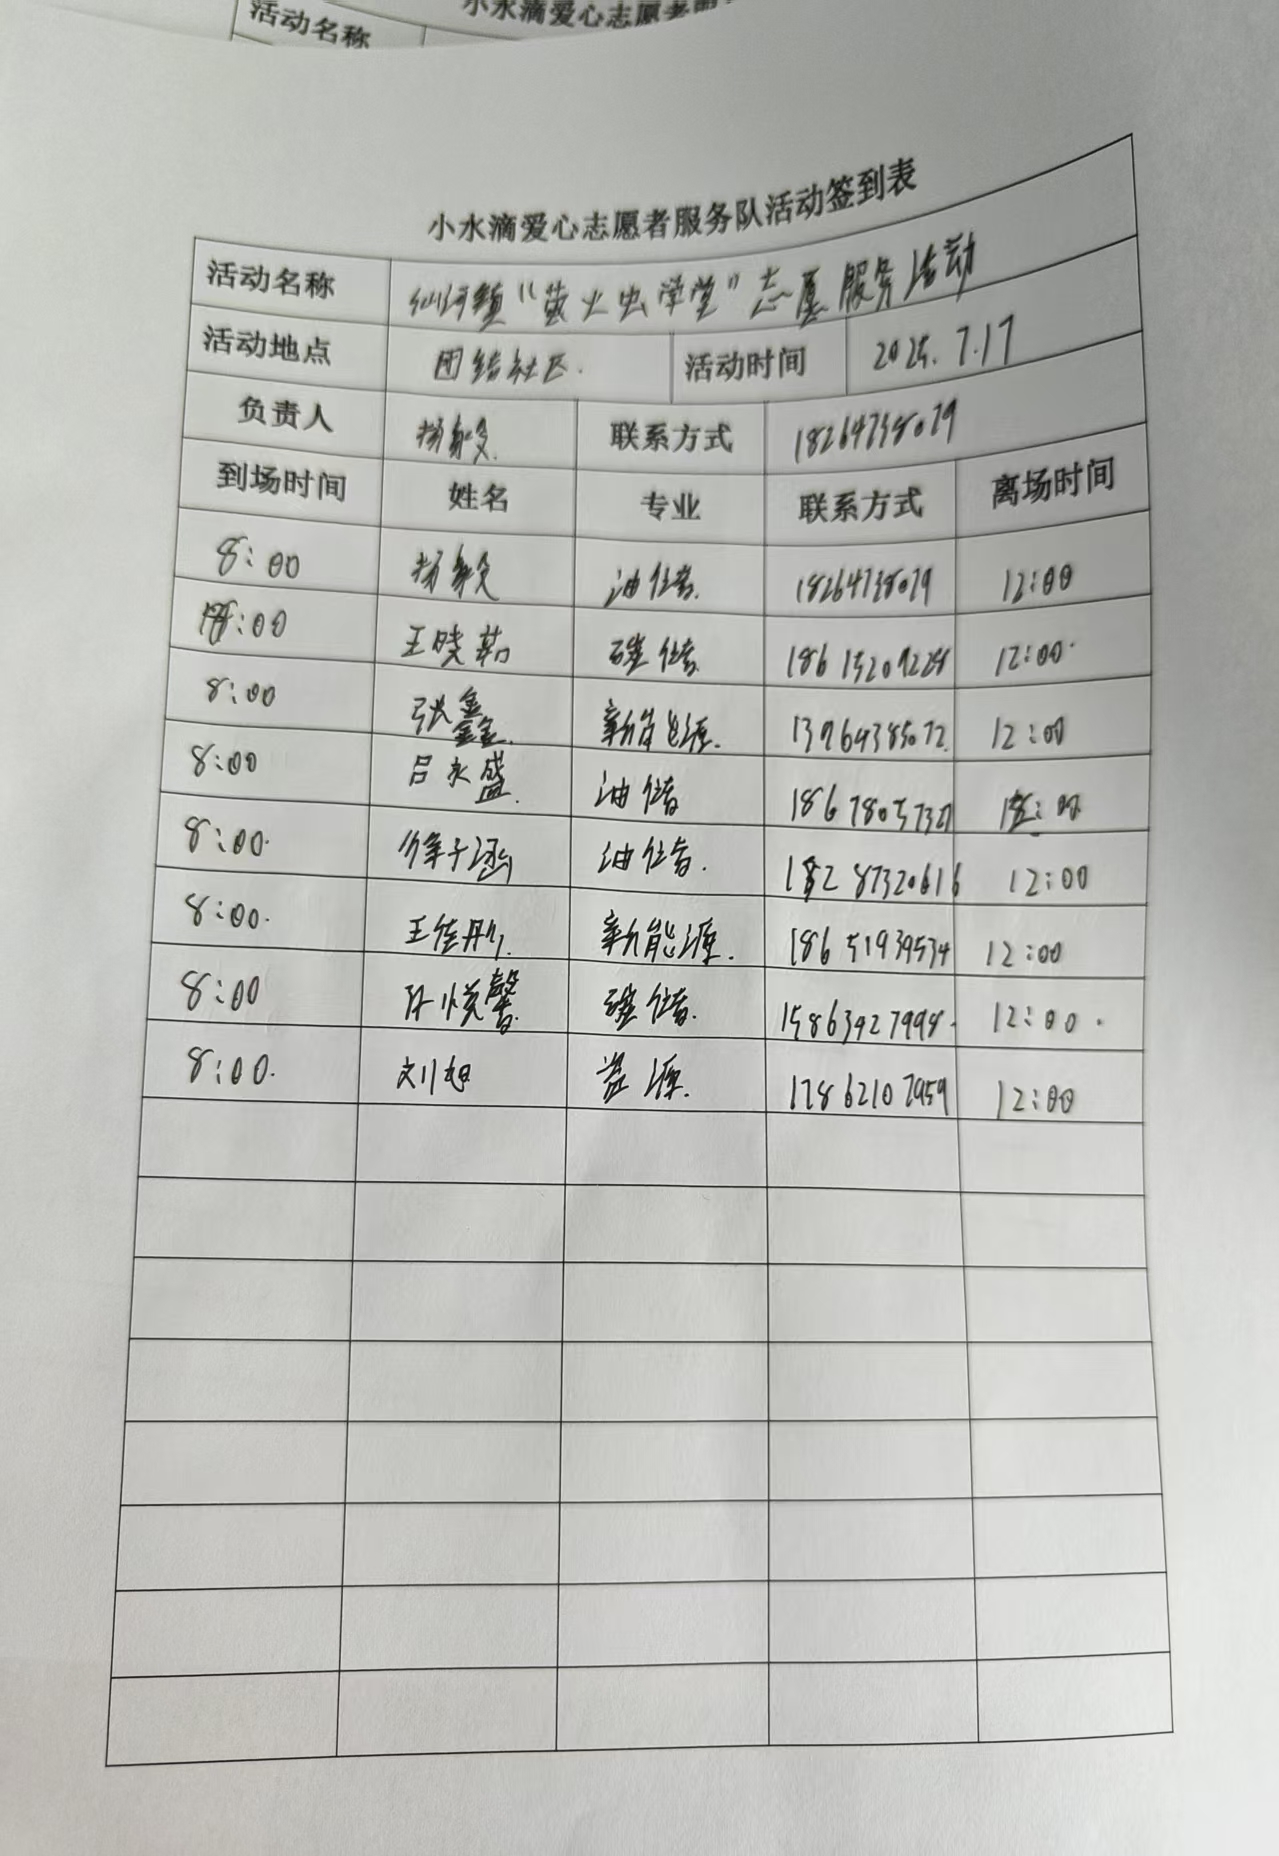 小水滴爱心志愿者
活动名称
小水滴爱心志愿者服务队活动签到表
活动名称 仙河镇“萤火虫学堂”志愿服务活动
活动地点 团结社区. 活动时间 2025.7.17
负责人 杨 联系方式 18264738079
到场时间 姓名 专业 联系方式 离场时间
8:00 杨 油储. 18264738079 12:00
:00 王晓茹 碳储 12:00.
8:00 张鑫鑫. 新能源. 13964385072. 12:00
8:00 吕永盛. 油储 :00
8:00. 徐子涵 油储. 18287320616 12:00
8:00. 王佳彤. 新能源. 18651939534 12:00
8:00 孙悦馨. 碳储. 15863927998. 12:00.
8:00. 刘旭 资源. 17862107959 12:00